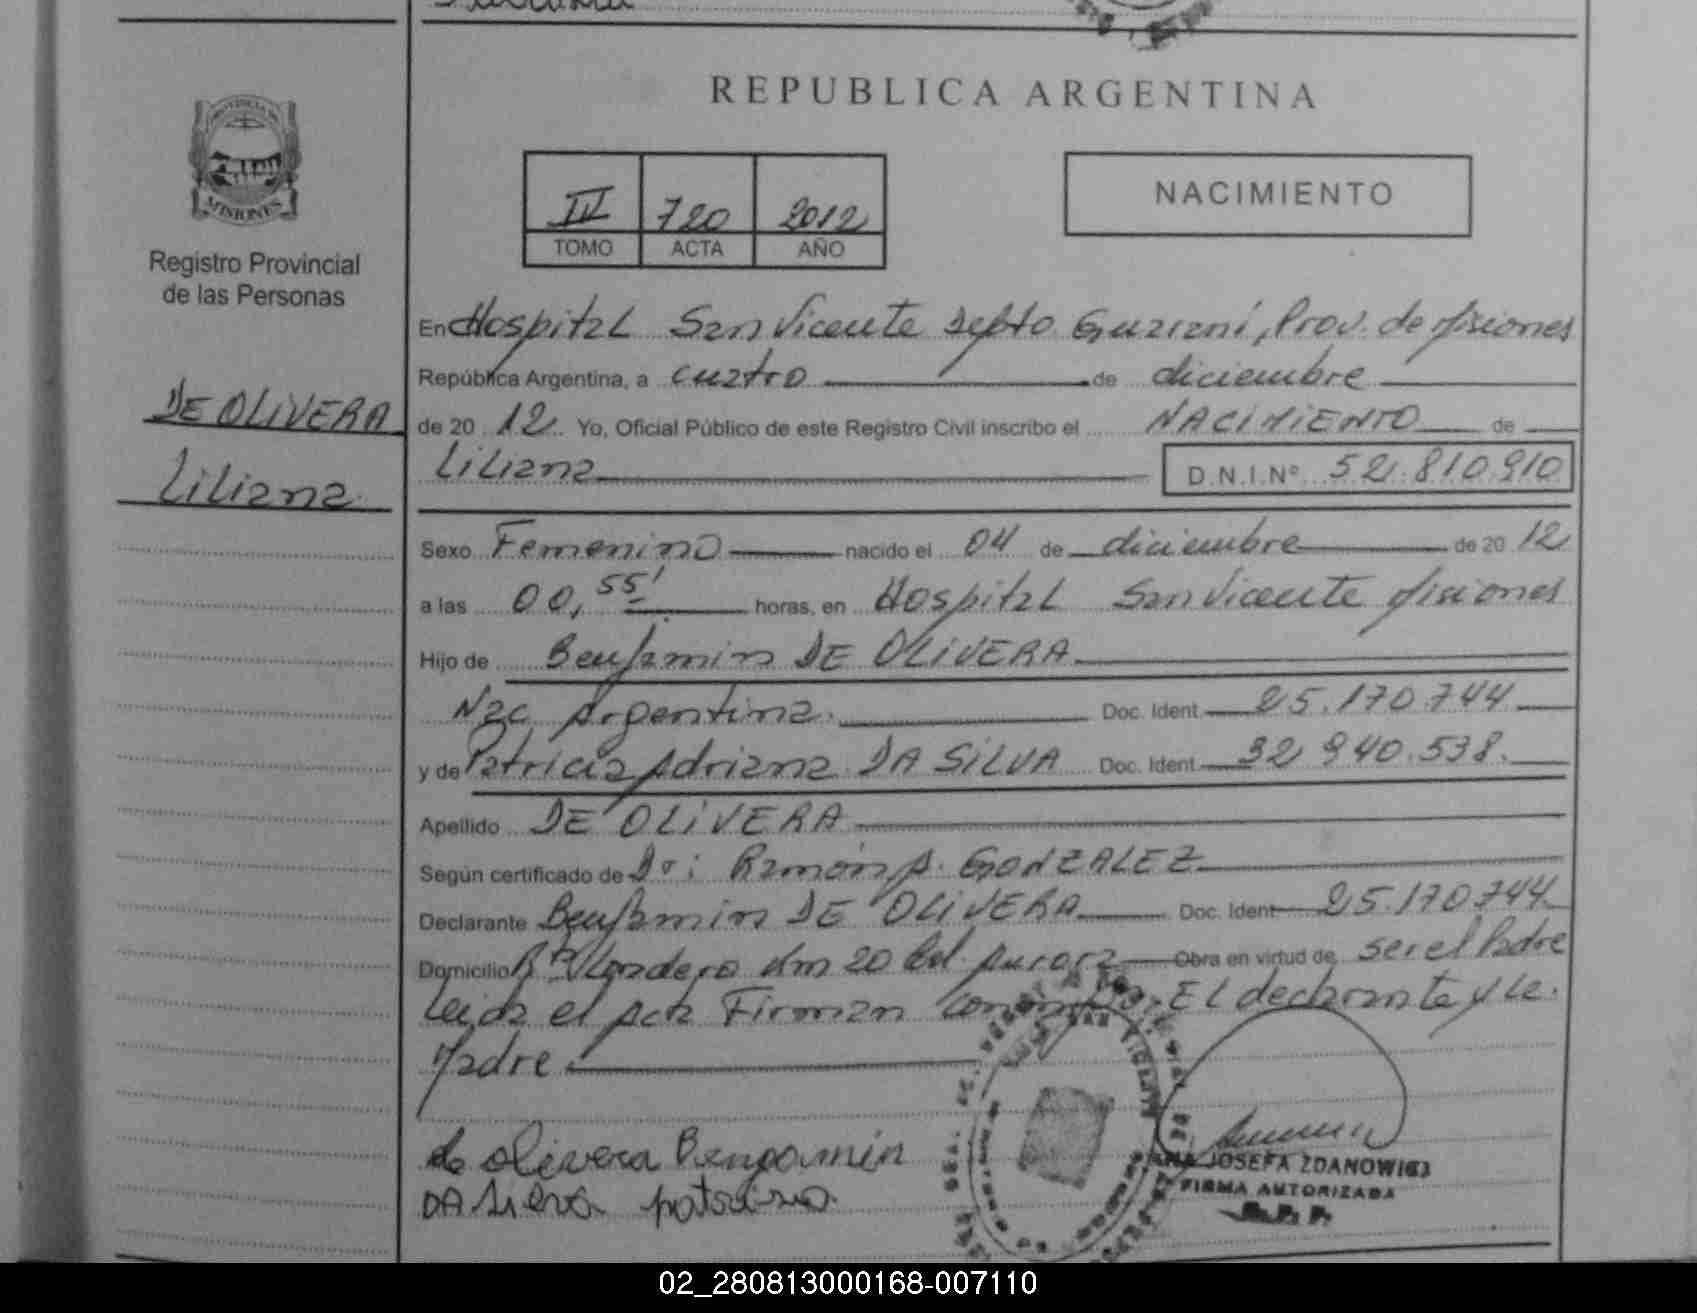 REPUBLICA ARGENTINA
PROVINCIA DE
MISIONES
Registro Provincial
de las Personas
IV 720 2012
TOMO ACTA AÑO
NACIMIENTO
DE OLIVERA
Liliana
En Hospital San Vicente Depto Guarani, Prov. de Misiones
República Argentina, a cuatro de diciembre
de 20 12 Yo, Oficial Público de este Registro Civil inscribo el NACIMIENTO de
Liliana D.N.I.Nº 52.810.910
Sexo Femenino nacido el 04 de diciembre de 20 12
a las 00,55' horas, en Hospital San Vicente Misiones
Hijo de Benjamin DE OLIVERA
Nac Argentina. Doc. Ident. 25.170.744
y de Patricia Adriana DA SILVA Doc. Ident. 32.940.538.
Apellido DE OLIVERA
Según certificado de Dr: Ramón A. GONZALEZ
Declarante Benjamin DE OLIVERA Doc. Ident. 25.170.744
Domicilio Km 20 Col. Aurora Obra en virtud de ser el Padre
Leida el acta Firman El declarante y la
Madre
de olivera Bengamin
DA silva patricia
ANA JOSEFA ZDANOWICZ
FIRMA AUTORIZADA
R. P. P.
02_280813000168-007110